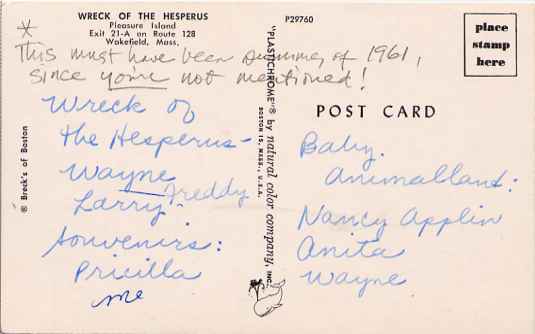 WRECK OF THE HESPERUS
Pleasure Island
Exit 21-A on Route 128
Wakefield, Mass,
P29760
place
stamp
here
* This must have been Summer of 1961,
since you're not mentioned!
POST CARD
Wreck of
the Hesperus-
Wayne
Freddy
Larry
Souvenirs:
Pricilla
me
Baby.
Animalland:
Nancy Applin
Anita
Wayne
® Breck's of Boston
"PLASTICHROME"® by natural color company, INC.
BOSTON 15, MASS., U.S.A.